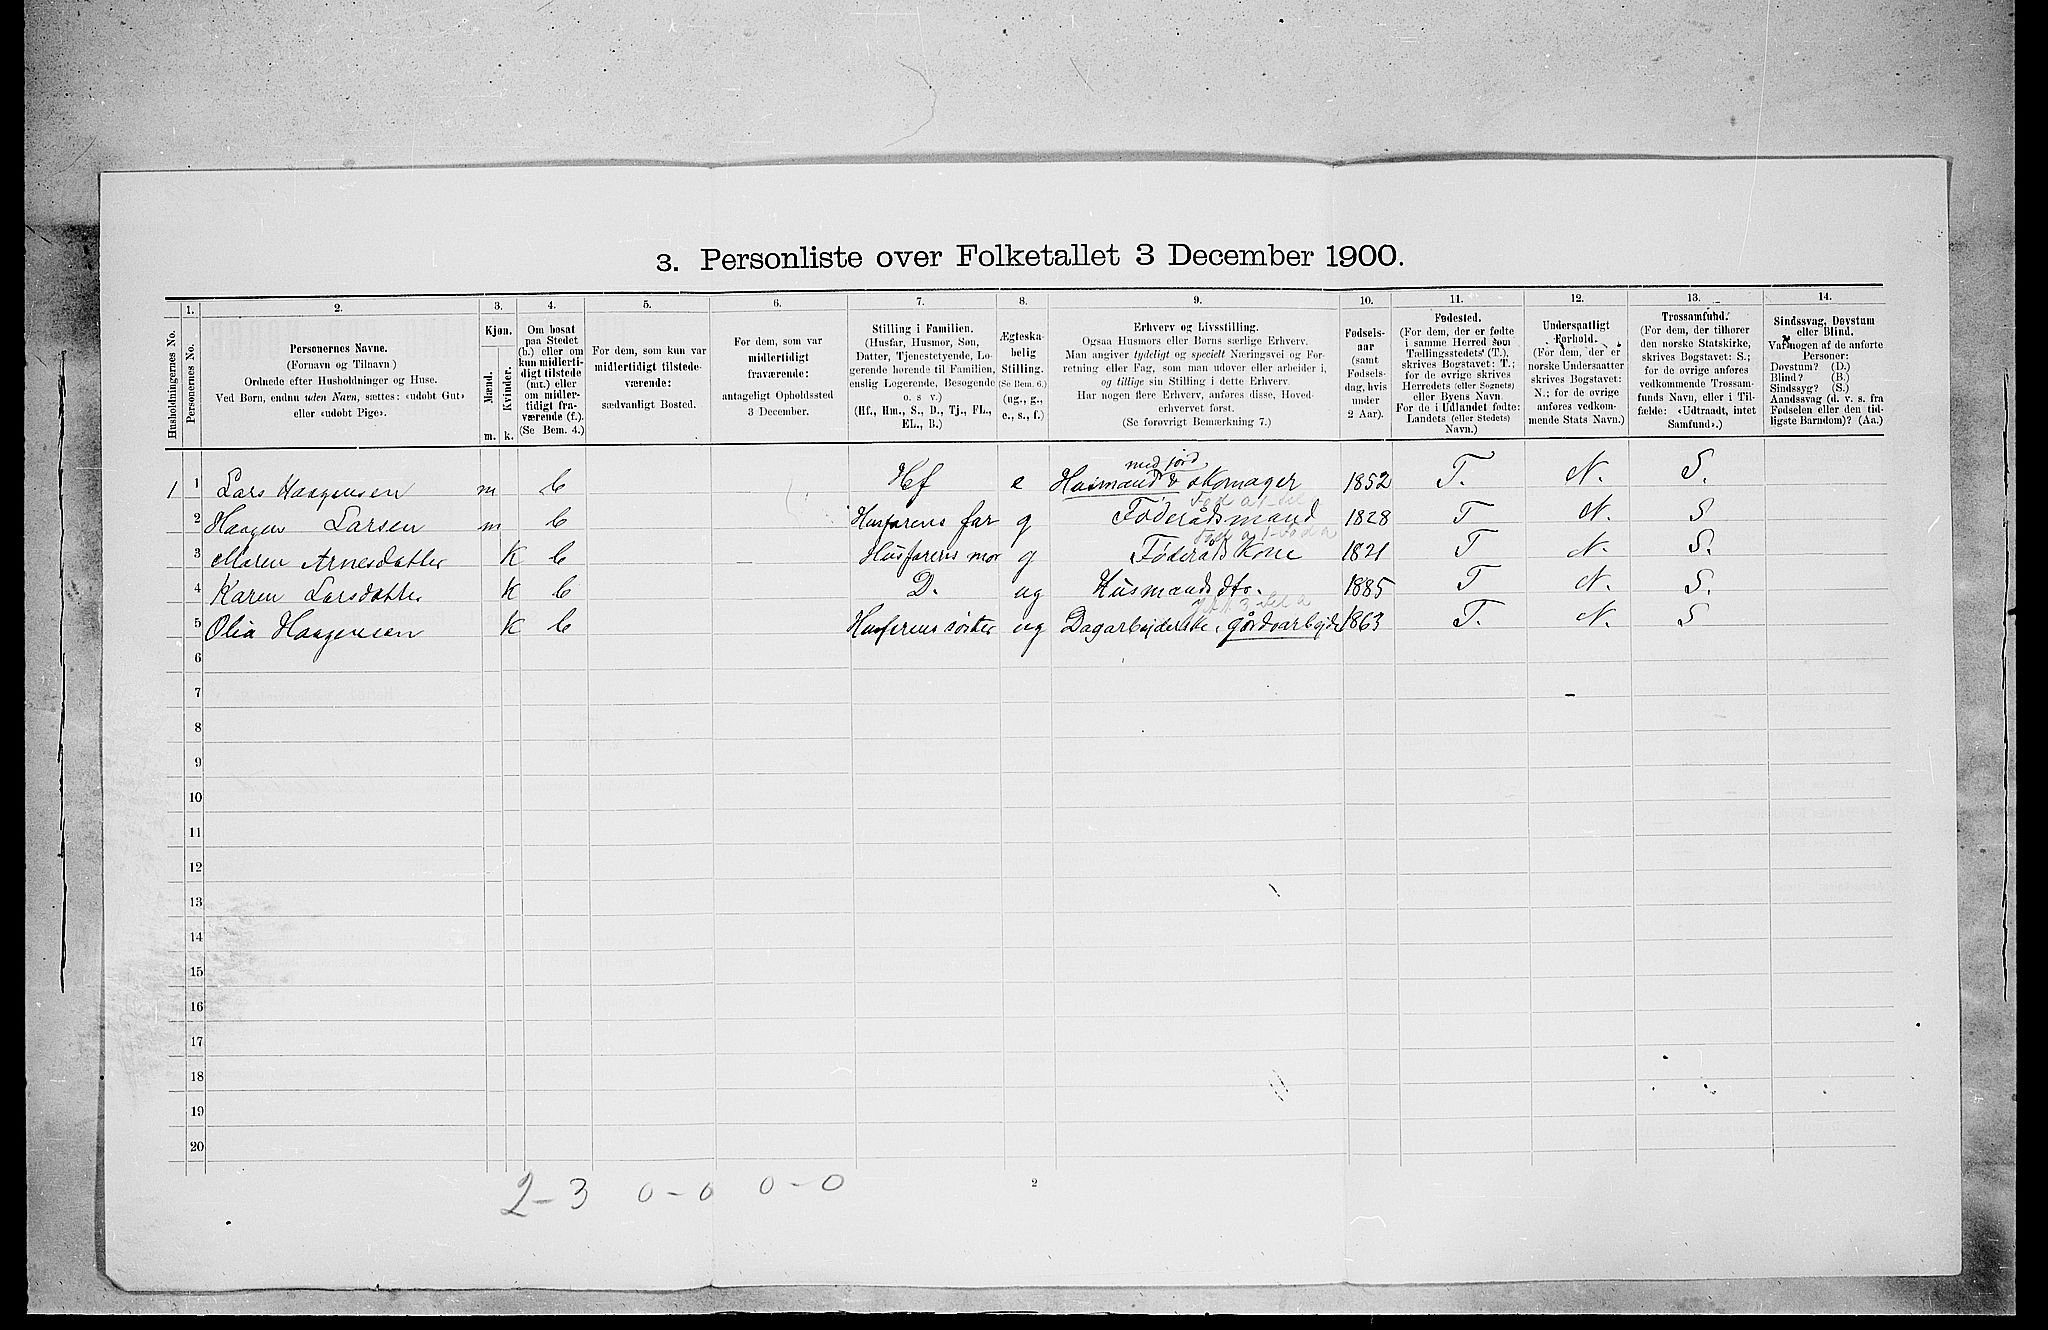 3. Personliste over Folketallet 3 December 1900.
1. 2. 3. 4. 5. 6. 7. 8. 9. 10. 11. 12. 13. 14.
Husholdningernes No.
Personernes No.
Personernes Navne.
(Fornavn og Tilnavn)
Ordnede efter Husholdninger og Huse.
Ved Børn, endnu uden Navn, sættes: «udøbt Gut»
eller «udøbt Pige».
Kjøn.
Mænd.
Kvinder.
m. k.
Om bosat
paa Stedet
(b.) eller om
kun midlerti-
digt tilstede
(mt.) eller
om midler-
tidigt fra-
værende (f.).
(Se Bem. 4.)
For dem, som kun var
midlertidigt tilstede-
værende:
sædvanligt Bosted.
For dem, som var
midlertidigt
fraværende:
antageligt Opholdssted
3 December.
Stilling i Familien.
(Husfar, Husmor, Søn,
Datter, Tjenestetyende, Lo-
gerende hørende til Familien,
enslig Logerende, Besøgende
o. s. v.)
(Hf., Hm., S., D., Tj., FL.,
EL., B.)
Ægteska-
belig
Stilling.
(Se Bem. 6.)
(ug., g.,
e., s., f.)
Erhverv og Livsstilling.
Ogsaa Husmors eller Børns særlige Erhverv.
Man angiver tydeligt og specielt Næringsvei og For-
retning eller Fag, som man udøver eller arbeider i,
og tillige sin Stilling i dette Erhverv.
Har nogen flere Erhverv, anføres disse, Hoved-
erhvervet først.
(Se forøvrigt Bemærkning 7.)
Fødsels-
aar
(samt
Fødsels-
dag, hvis
under
2 Aar).
Fødested.
(For dem, der er fødte
i samme Herred som
Tællingsstedets (T.),
skrives Bogstavet: T.;
for de øvrige skrives
Herredets (eller Sognets)
eller Byens Navn.
For de i Udlandet fødte:
Landets (eller Stedets)
Navn.)
Undersaatligt
Forhold.
(For dem, der er
norske Undersaatter
skrives Bogstavet:
N.; for de øvrige
anføres vedkom-
mende Stats Navn.)
Trossamfund.
(For dem, der tilhører
den norske Statskirke,
skrives Bogstavet: S.;
for de øvrige anføres
vedkommende Trossam-
funds Navn, eller i Til-
fælde: «Udtraadt, intet
Samfund».)
Sindssvag, Døvstum
eller Blind.
Var nogen af de anførte
Personer:
Døvstum? (D.)
Blind? (B.)
Sindssyg? (S.)
Aandssvag (d. v. s. fra
Fødselen eller den tid-
ligste Barndom)? (Aa.)
med jord
1 1 Lars Haagensen m b Hf e Husmand & skomager 1852 T. N. S.
2 Haagen Larsen m b Husfarens far g Føderådsmand 1828 T N. S
3 Maren Arnesdatter K b Husfarens mor g Føderåds Kone 1821 T N. S.
4 Karen Larsdatter K b D. ug Husmands dtr. 1885 T N. S.
5 Olia Haagensen K b Husfarens søster ug Dagarbejderske, gårdsarbejde 1863 T. N. S
6
7
8
9
10
11
12
13
14
15
16
17
18
19
20
2-3 0-0 0-0
2